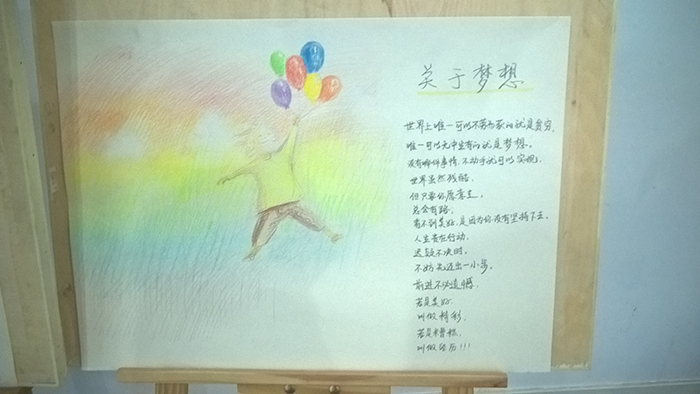 关于梦想
世界上唯一可以不劳而获的就是贫穷，
唯一可以无中生有的就是梦想。
没有哪件事情，不动手就可以实现。
世界虽然残酷，
但只要你愿意走，
总会有路，
看不到美好，是因为你没有坚持下去。
人生贵在行动，
迟疑不决时，
不妨先迈出一小步。
前进不必遗憾，
若是美好，
叫做精彩，
若是糟糕，
叫做经历！！！